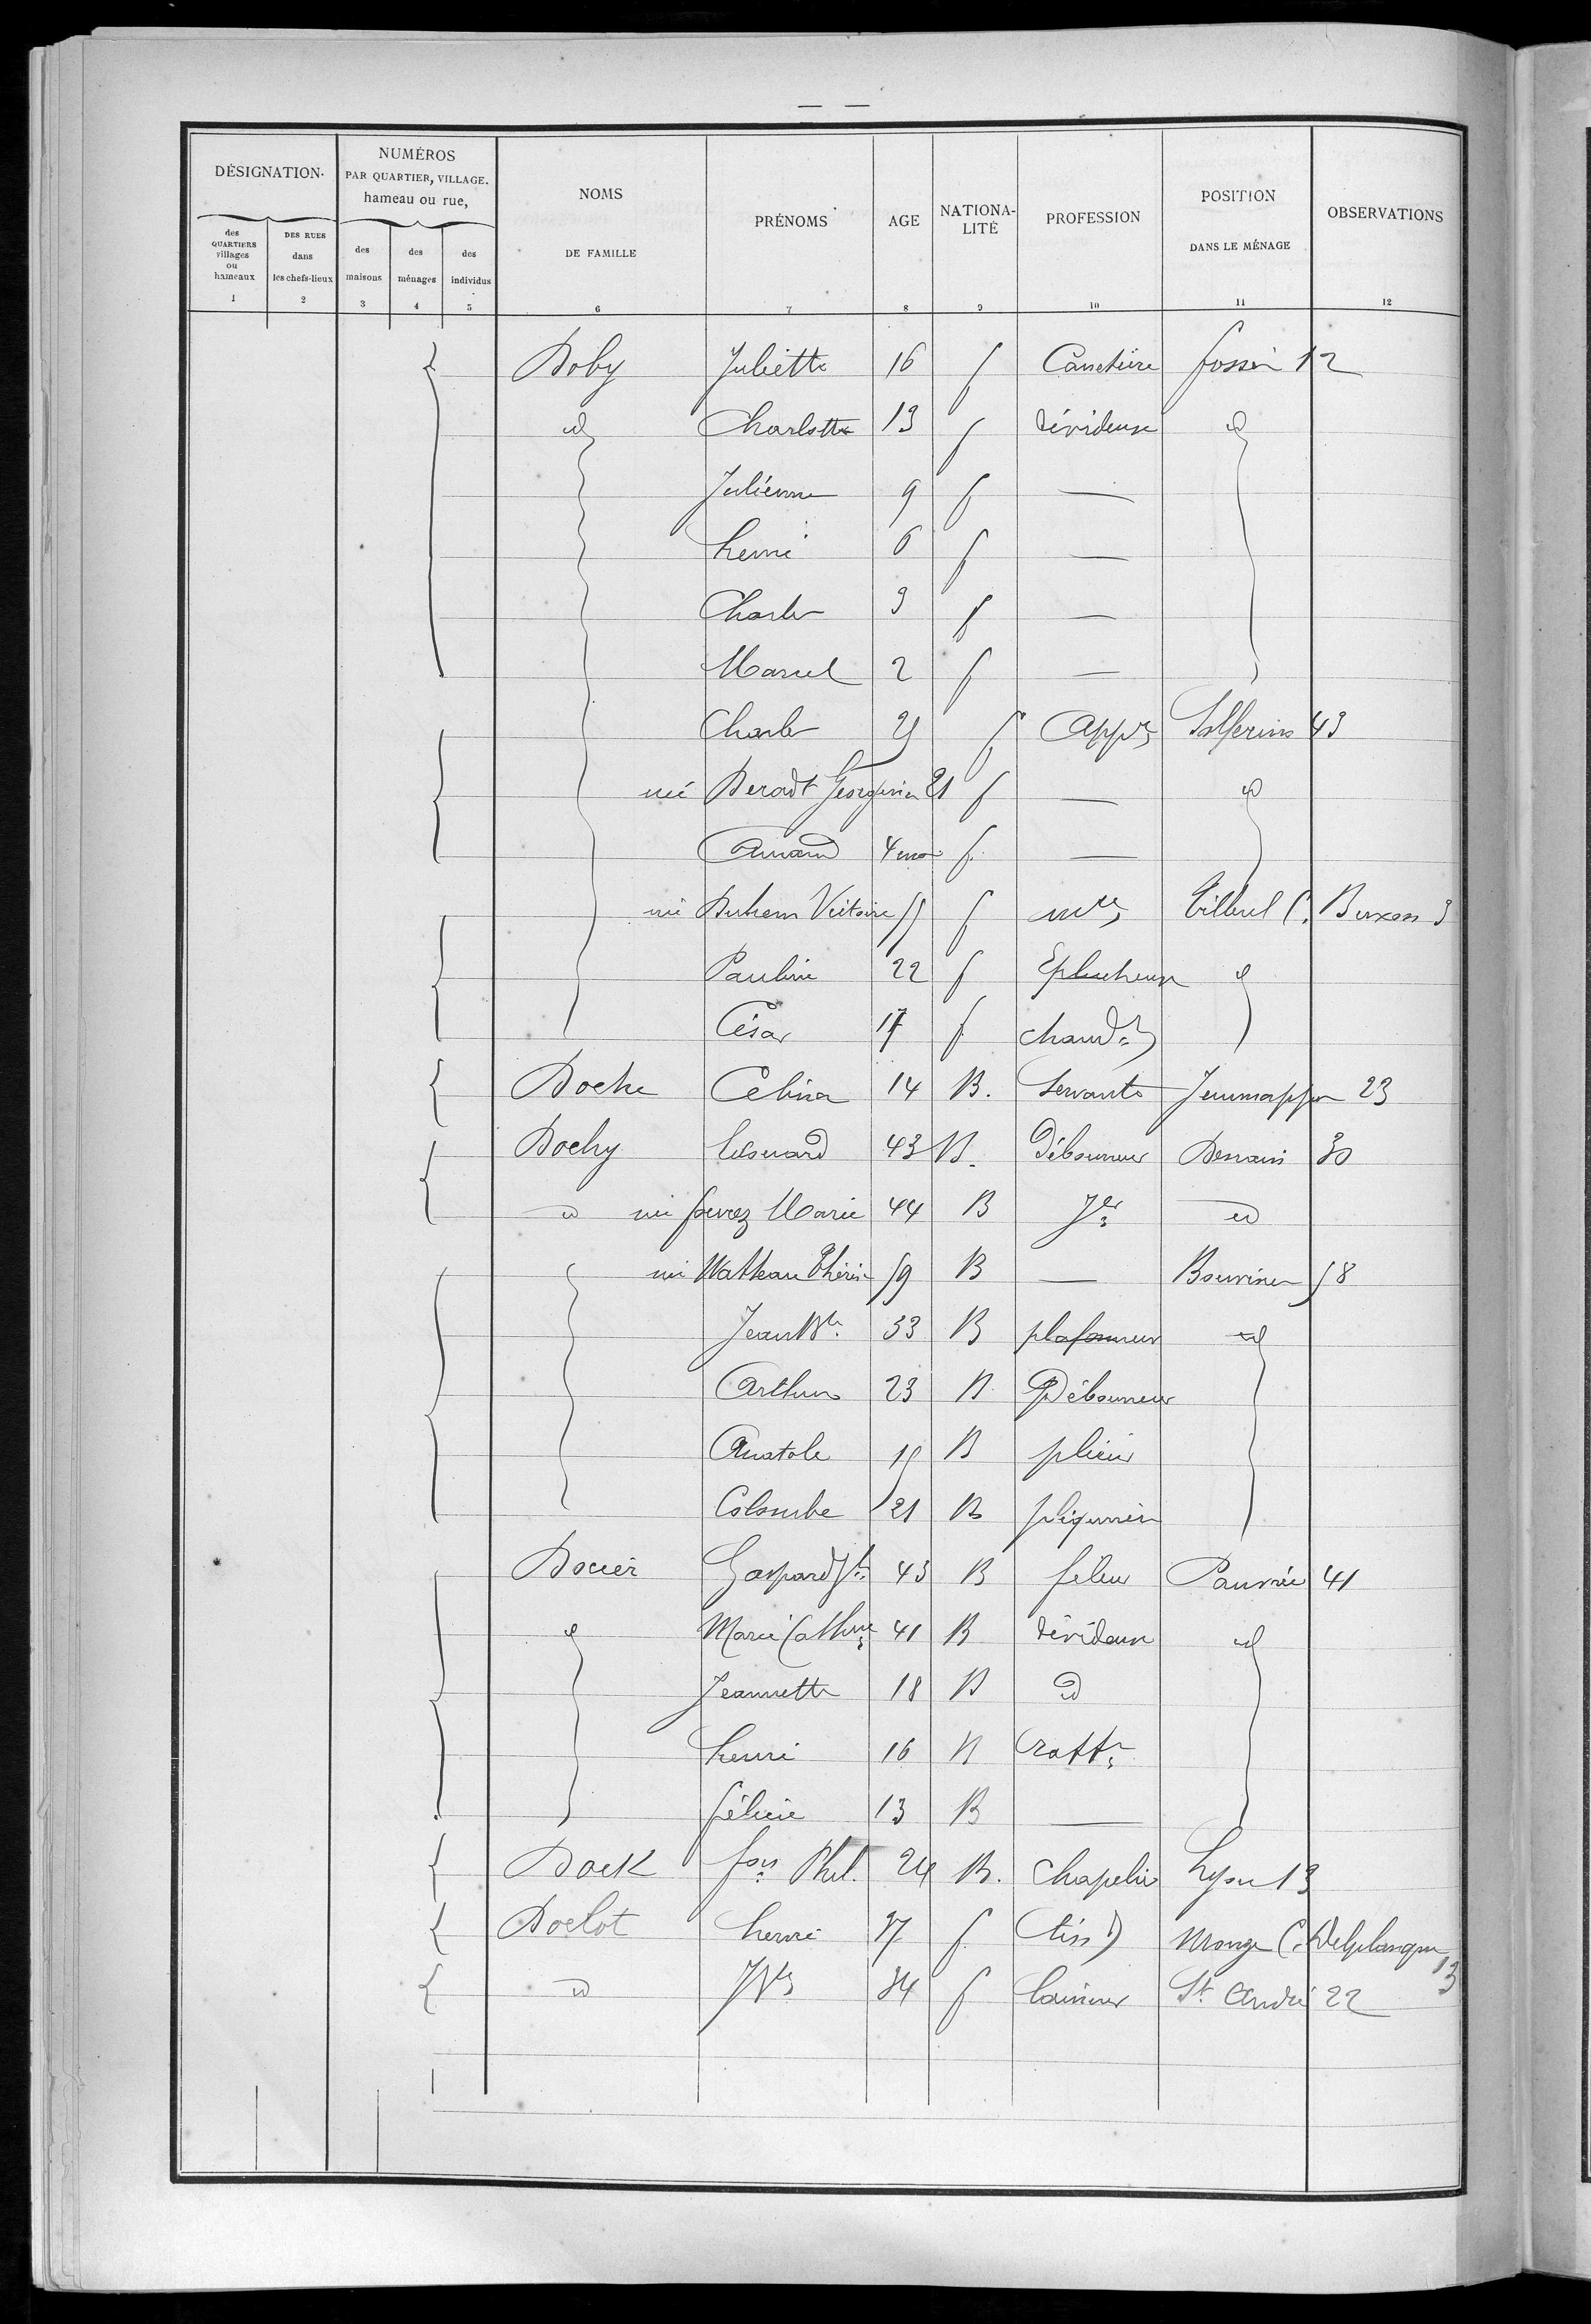 — —
DÉSIGNATION.
NUMÉROS
PAR QUARTIER, VILLAGE.
hameau ou rue,
NOMS
DE FAMILLE
PRÉNOMS
AGE
NATIONA-
LITÉ
PROFESSION
POSITION
DANS LE MÉNAGE
OBSERVATIONS
des
QUARTIERS
villages
ou
hameaux
DES RUES
dans
les chefs-lieux
des
maisons
des
ménages
des
individus
1 2 3 4 5 6 7 8 9 10 11 12
Doby Juliette 16 f fossés 12
id Charlotte 13 f dévideuse id
Julienne 9 f —
henri 6 f —
Charles 3 f —
Marcel 2 f —
Charles f App Solferino 43
née Georgina 21 f — id
4 mois f. —
née Duhem Victoire f Tilleul C. Buxon 3
Pauline 22 f Eplucheuse id
César 17 f chaudr
Doche Celina 14 B. Servante Jemmapes 23
Dochy Edouard 43 B. Débourreur Denain 30
id née favrez Marie 44 B Jre id
née Watteau Thérèse 59 B — Bouvines 58
Jean Bte 33 B plafonneur id
Arthur 23 B Débourreur
Anatole B plieur
Colombe 21 B piqurière
Docier Gaspard 43 B fileur Pauvrée 41
id Marie Cathne 41 B dévideuse id
Jeannette 18 B id
henri 16 B ratt
félicie 13 B —
Dock fois Phil. 24 B. chapelier Lyon 13
Doclot henri f tiss Monge C. Delplanque 13
id 34 f laineur St André 22